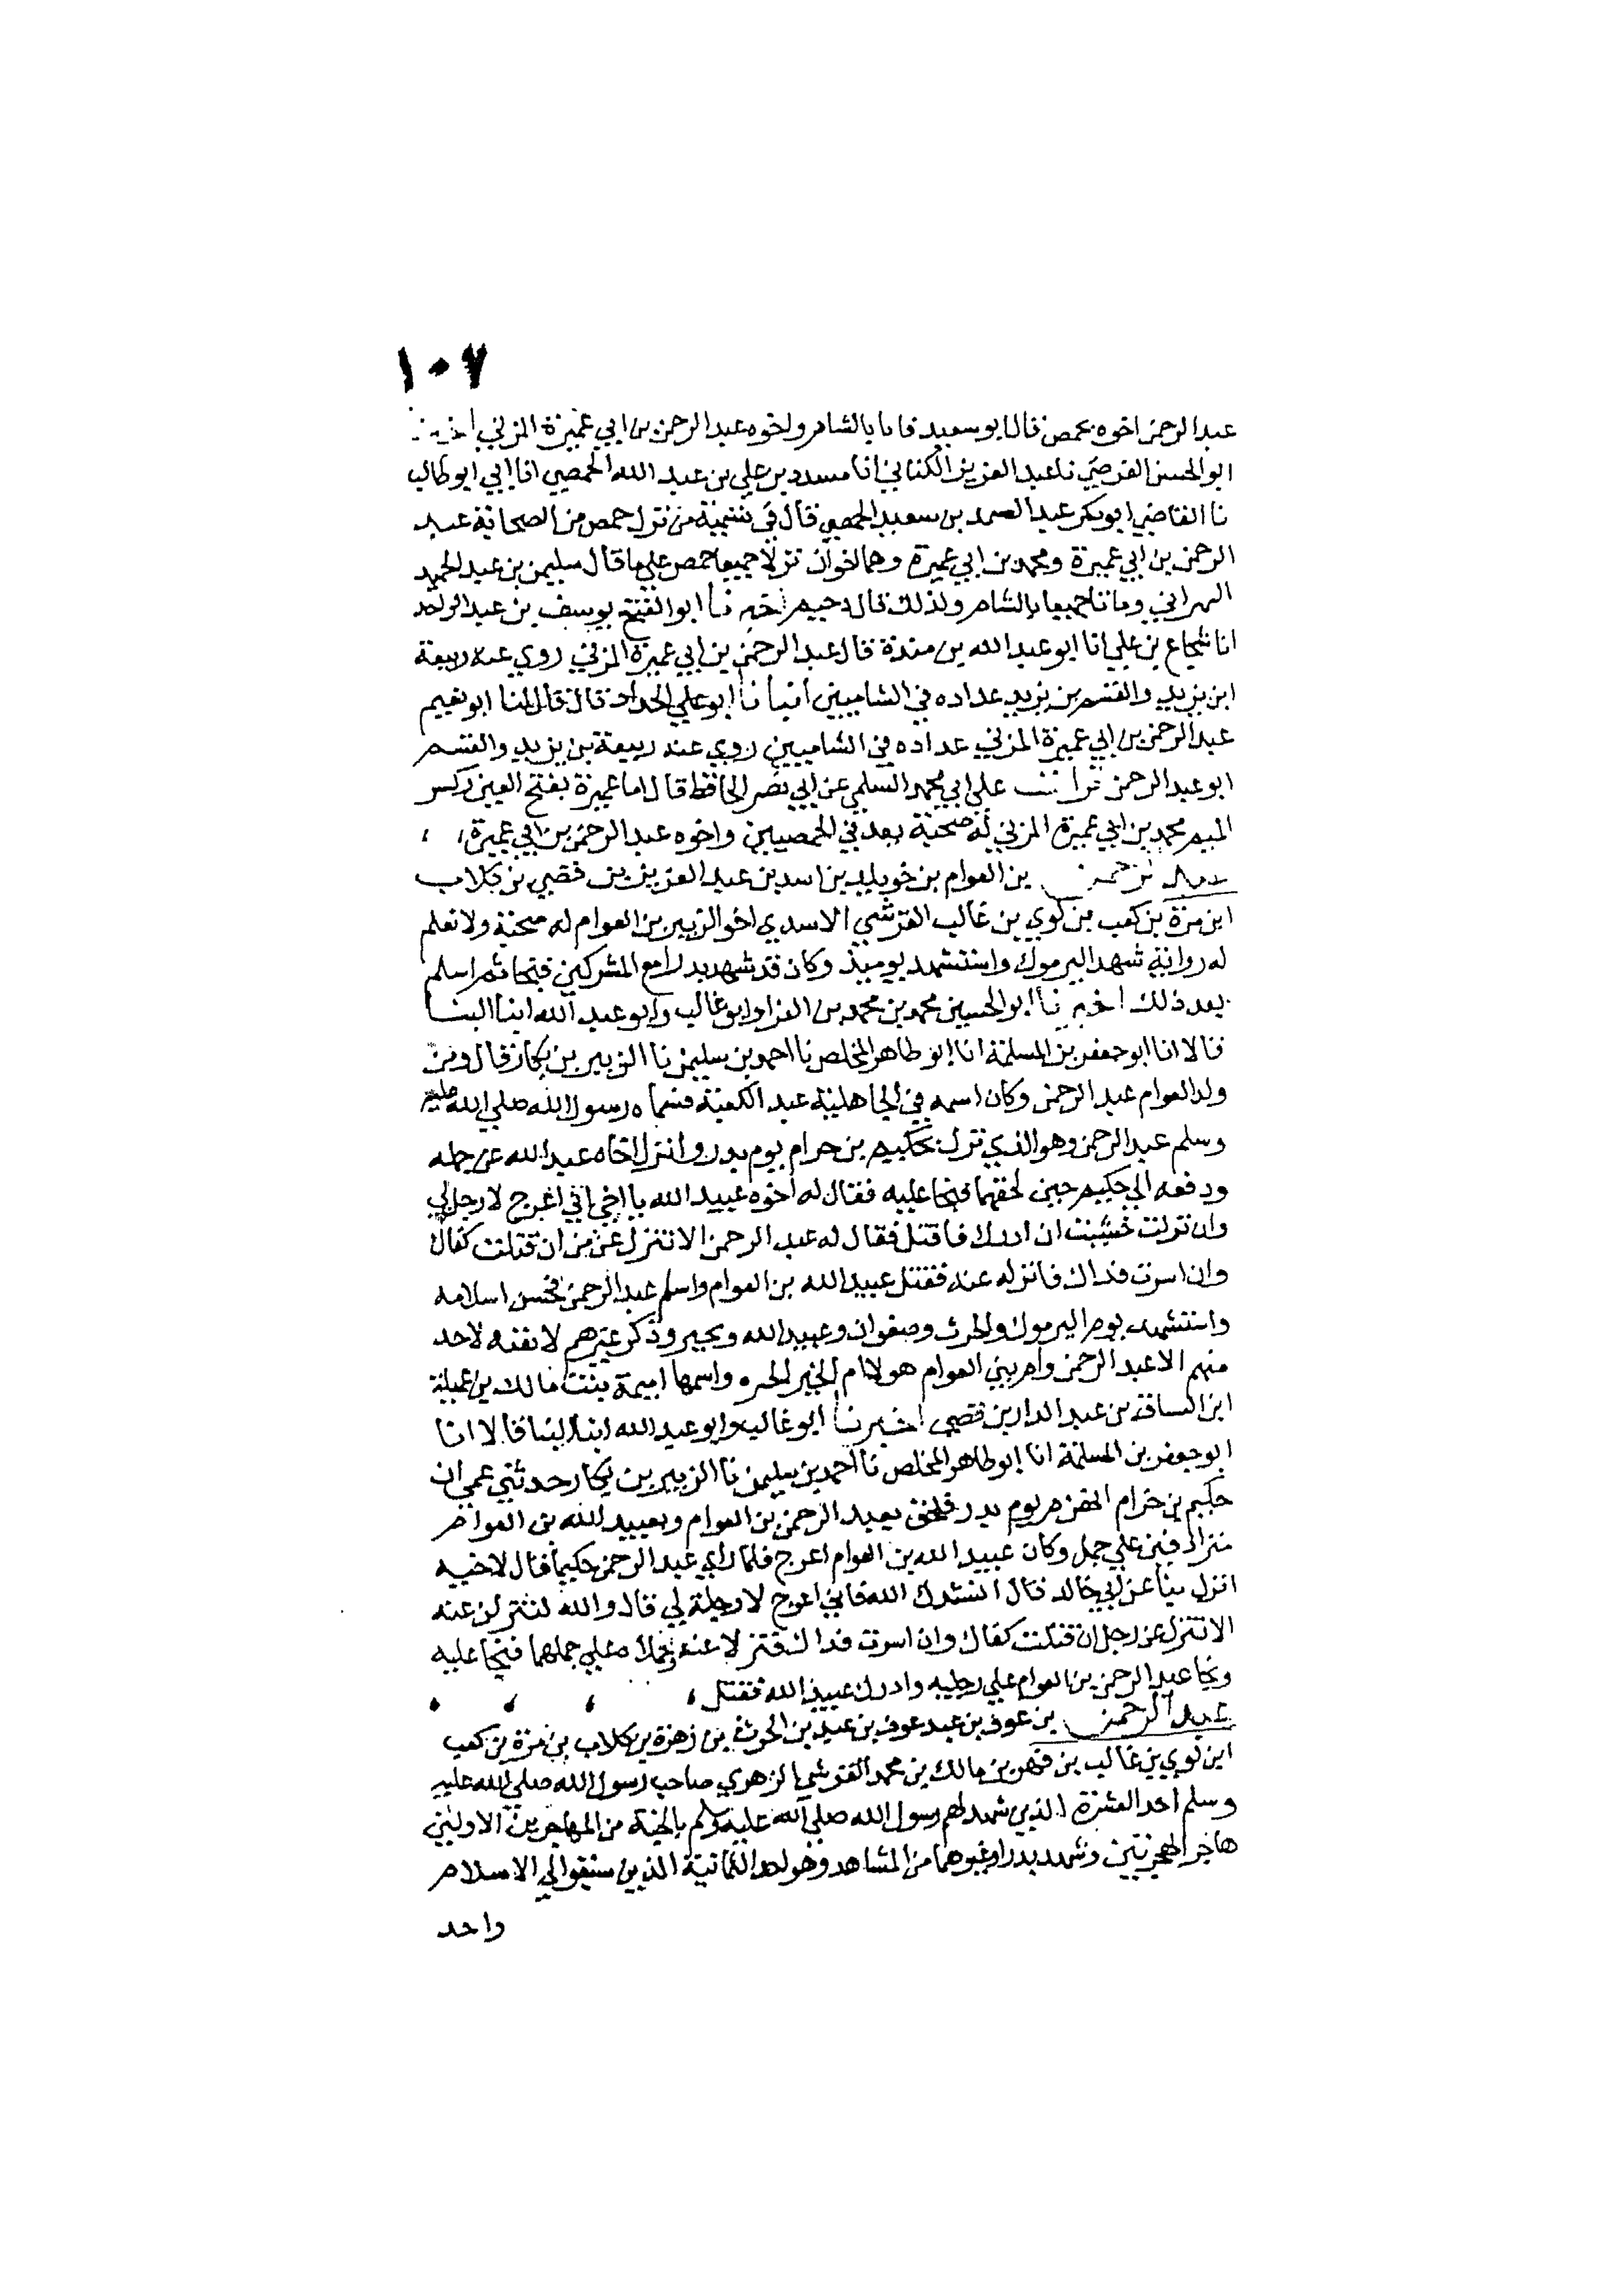 ١٠٧
عبد الرحمن اخوه بحمص قال ابو سعيد فاتا بالشام واخوه عبد الرحمن بن ابي عميرة المزني اخبرنا
ابو الحسن الفرضي نا عبد العزيز الكناني انا مسدد بن علي بن عبد الله الحمصي انا ابي ابو طالب
نا القاضي ابو بكر عبد الصمد بن سعيد الحمصي قال في تسمية من نزل حمص من الصحابة عبد
الرحمن بن ابي عميرة ومحمد بن ابي عميرة وهما اخوان نزلا جميعا حمص علي ما قال سليمن بن عبد الحميد
البهراني وماتا جميعا بالشام ولذلك قال دحيم اخبرنا ابو الفتح يوسف بن عبد الواحد
انا شجاع بن علي انا ابو عبد الله بن مندة قال عبد الرحمن بن ابي عميرة المزني روي عنه ربيعة
ابن يزيد والقسم بن يزيد عداده في الشاميين انبانا ابو علي الحداد قال قال لنا ابو نعيم
عبد الرحمن بن ابي عميرة المزني عداده في الشاميين روي عنه ربيعة بن يزيد والقسم
ابو عبد الرحمن قرات علي ابي محمد السلمي عن ابي نصر الحافظ قال اما عميرة بفتح العين وكسر
الميم محمد بن ابي عميرة المزني له صحبة يعد في الحمصيين واخوه عبد الرحمن بن ابي عميرة ،
عبد الرحمن بن العوام بن خويلد بن اسد بن عبد العزيز بن قصي بن كلاب
ابن مرة بن كعب بن لوي بن غالب القرشي الاسدي اخو الزبير بن العوام له صحبة ولا نعلم
له رواية شهد اليرموك واستشهد يوميذ وكان قد شهد بدرا مع المشركين فنجا ثم اسلم
بعد ذلك اخبرنا ابو الحسين محمد بن محمد بن الفرا وابو غالب وابو عبد الله ابنا البنا
قالا انا ابو جعفر بن المسلمة انا ابو طاهر المخلص نا احمد بن سليمن نا الزبير بن بكار قال ومن
ولد العوام عبد الرحمن وكان اسمه في الجاهلية عبد الكعبة فسماه رسول الله صلي الله عليه
وسلم عبد الرحمن وهو الذي نزل بحكيم بن حزام يوم بدر وانزل اخاه عبد الله عن جمله
ودفعه الي حكيم حين لحقهما فنجا عليه فقال له اخوه عبيد الله يا اخي اني اعرج لا رجل لي
وان نزلت خشيت ان ادرك فاقتل فقال له عبد الرحمن الا تنزل عن من ان قتلت كفاك
وان اسرت فداك فانزله عنه فقتل عبيد الله بن العوام واسلم عبد الرحمن فحسن اسلامه
واستشهد يوم اليرموك والحرث وصفوان وعبيد الله وبحير وذكر غيرهم لا بقية لاحد
منهم الا عبد الرحمن وام بني العوام هولا ام الخير واسمها اميمة بنت مالك بن عميلة
ابن السباق بن عبد الدار بن قصي اخبرنا ابو غالب وابو عبد الله ابنا البنا قالا انا
ابو جعفر بن المسلمة انا ابو طاهر المخلص نا احمد بن سليمن نا الزبير بن بكار حدثني عمي ان
حكيم بن حزام انهزم يوم بدر فلحق بعبد الرحمن بن العوام وبعبيد الله بن العوام
مترادفين علي جمل وكان عبيد الله بن العوام اعرج فلما راي عبد الرحمن حكيما قال لاخيه
انزل بنا عن ابي خالد قال انشدك الله فاني اعرج لا رجلة لي قال والله لتنزلن عنه
الا تنزل عن رجل ان قتلت كفاك وان اسرت فداك فنزلا عنه وحملاه علي جملهما فنجا عليه
ونجا عبد الرحمن بن العوام علي رجليه وادرك عبيد الله فقتل ،
عبد الرحمن بن عوف بن عبد عوف بن عبد بن الحرث بن زهرة بن كلاب بن مرة بن كعب
ابن لوي بن غالب بن فهر بن مالك بن محمد القرشي الزهري صاحب رسول الله صلي الله عليه
وسلم احد العشرة الذين شهد لهم رسول الله صلي الله عليه وسلم بالجنة من المهاجرين الاولين
هاجر الهجرتين وشهد بدرا وغيرهما من المشاهد وهو احد الثمانية الذين سبقوا الي الاسلام
واحد